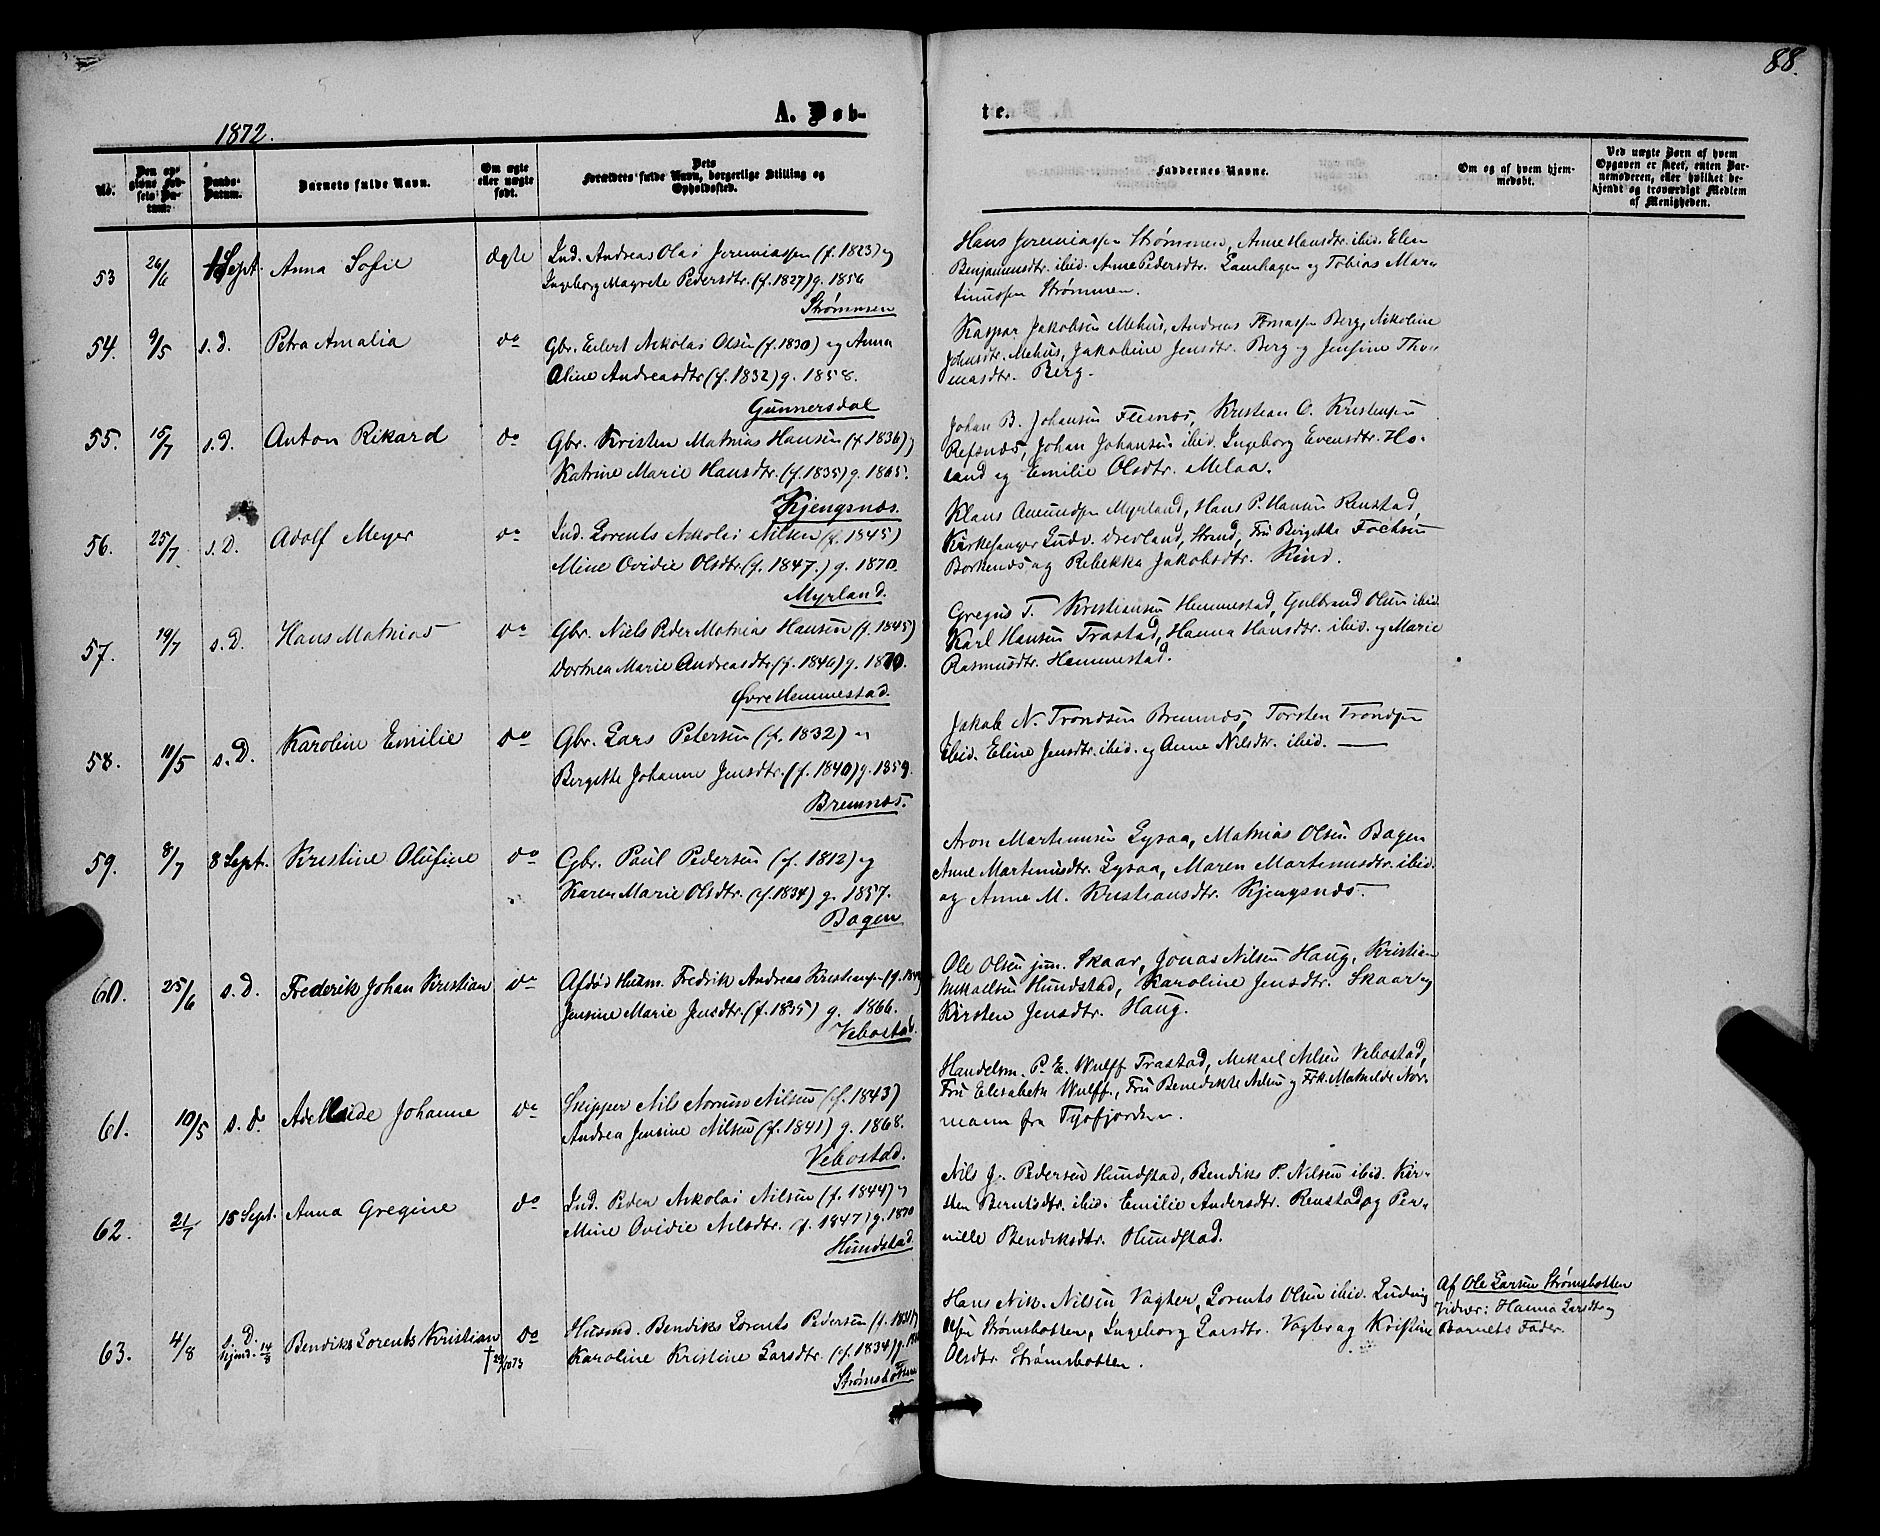 88.
1872.
A. Døb-
te.
No.
Den op-
givne Fød-
sels Da-
tum.
Daabs-
Datum.
Barnets fulde Navn.
Om ægte
eller uægte
født.
Dets
Forældres fulde Navn, borgerlige Stilling og
Opholdssted.
Faddernes Navne.
Om og af hvem hjem-
medøbt.
Ved uægte Børn af hvem
Opgaven er skeet, enten Bar-
nemoderen, eller hvilket be-
kjendt og troværdigt Medlem
af Menigheden.
53 26/6 1 Sept. Anna Sofie ægte
Ind. Andreas Olai Jeremiassen (f. 1823) og
Ingeborg Magrete Pedersdtr. (f. 1827) g. 1856
Strømmen
Hans Jeremiassen Strømmen, Anne Hansdtr. ibid. Elen
Benjaminsdtr. ibid. Anne Pedersdtr. Lamhagen og Tobias Mar-
tinussen Strømmen.
54. 9/5 s. D. Petra Amalia do
Gbr. Eilert Nikolai Olsen (f. 1830) og Anna
Oline Andreasdtr. (f. 1832) g. 1858.
Gunnersdal
Kaspar Jakobsen Mehus, Andreas Tomassen Berg, Nikoline
Johnsdtr. Mehus, Jakobine Jensdtr. Berg og Jensine Tho-
masdtr. Berg.
55. 15/7 s. D. Anton Rikard do
Gbr. Kristen Mathias Hansen (f. 1836) og
Katrine Marie Hansdtr. (f. 1835) g. 1865.
Kjengsnæs.
Johan B. Johansen Flesnæs, Kristian O. Kristensen
Refsnæs, Johan Johansen ibid. Ingeborg Evensdtr. Ho-
land og Emilie Olsdtr. Melaa.
56. 25/7 s. D. Adolf Meyer do
Ind. Lorents Nikolai Nilsen (f. 1845)
Mine Ovidie Olsdtr. (f. 1847.) g. 1870.
Myrland.
Klaus Amundsen Myrland, Hans P. Hansen Renstad,
Kirkesanger Ludv. Drevland, Strand, Fru Bergitte Fochsen
Borkenæs og Rebekka Jakobsdtr. Rind.
57. 19/7 s. D. Hans Mathias do
Gbr. Niels Peder Mathias Hansen (f. 1845)
Dorthea Marie Andreasdtr. (f. 1846) g. 1870.
Øvre Hemmestad.
Gregus T. Kristiansen Hemmestad, Gulbrand Olsen ibid.
Karl Hansen Trastad, Hanna Hansdtr. ibid. og Marie
Rasmusdtr. Hemmestad.
58. 11/5 s. D. Karoline Emilie do
Gbr. Lars Petersen (f. 1832) og
Bergitte Johanne Jensdtr. (f. 1840) g. 1859.
Bremnæs.
Jakob N. Trondsen Bremnæs, Torsten Trondsen
ibid. Eline Jensdtr. ibid. og Anne Nilsdtr. ibid.
59. 8/7 8 Sept. Kristine Olufine do
Gbr. Paul Pedersen (f. 1812) og
Karen Marie Olsdtr. (f. 1834) g. 1857.
Bogen
Aron Martinusen Lysaa, Mathias Olsen Bogen
Anne Martinusdtr. Lysaa, Maren Martinusdtr. ibid.
og Anne M. Kristiansdtr. Kjengsnæs.
60. 25/6 s. D. Frederik Johan Kristian do
Afdød Husm. Fredrik Andreas Kristiansen
Jensine Marie Jensdtr. (f. 1835) g. 1866.
Vebostad.
Ole Olsen jun. Skaar, Jonas Nilsen Haug, Kristian
Mikaelsen Hundstad, Karoline Jensdtr. Skaar og
Kirsten Jensdtr. Haug.
61. 10/5 s. D. Adellaide Johanne do
Skipper Nils Normn Nilsen (f. 1843)
Andrea Jensine Nilsen (f. 1841) g. 1868.
Vebostad.
Handelsm. P. E. Wulff Trastad, Mikael Nilsen Vebostad,
Fru Elisabeth Wulff, Fru Benedikte Nilsen og Frk. Mathilde Nor-
mann fra Tysfjorden.
62. 21/7 15 Sept. Anna Gregine do
Ind. Peder Nikolai Nilsen (f. 1844) og
Mine Ovidie Nilsdtr. (f. 1847) g. 1870
Hundstad.
Nils J. Pedersen Hundstad, Bendiks P. Nilsen ibid. Kir-
sten Berntsdtr. ibid. Emilie Andersdtr. Renstad og Per-
nille Bendiksdtr. Hundstad.
63. 4/8 s. D. Hjemd. 14/8 Bendiks Lorents Kristian do
Husmd. Bendiks Lorents Pedersen
Karoline Kristine Larsdtr. (f. 1834)
Strømsbotten
Hans Nik. Nilsen Vagter, Lorents Olsen ibid. Ludvig
Olsen Strømsbotten, Ingeborg Larsdtr. Vagter og Kristine
Olsdtr. Strømsbotten.
Af Ole Larsen Strømsbotten
Vidner: Hanna Larsdtr. og
Barnets Fader.